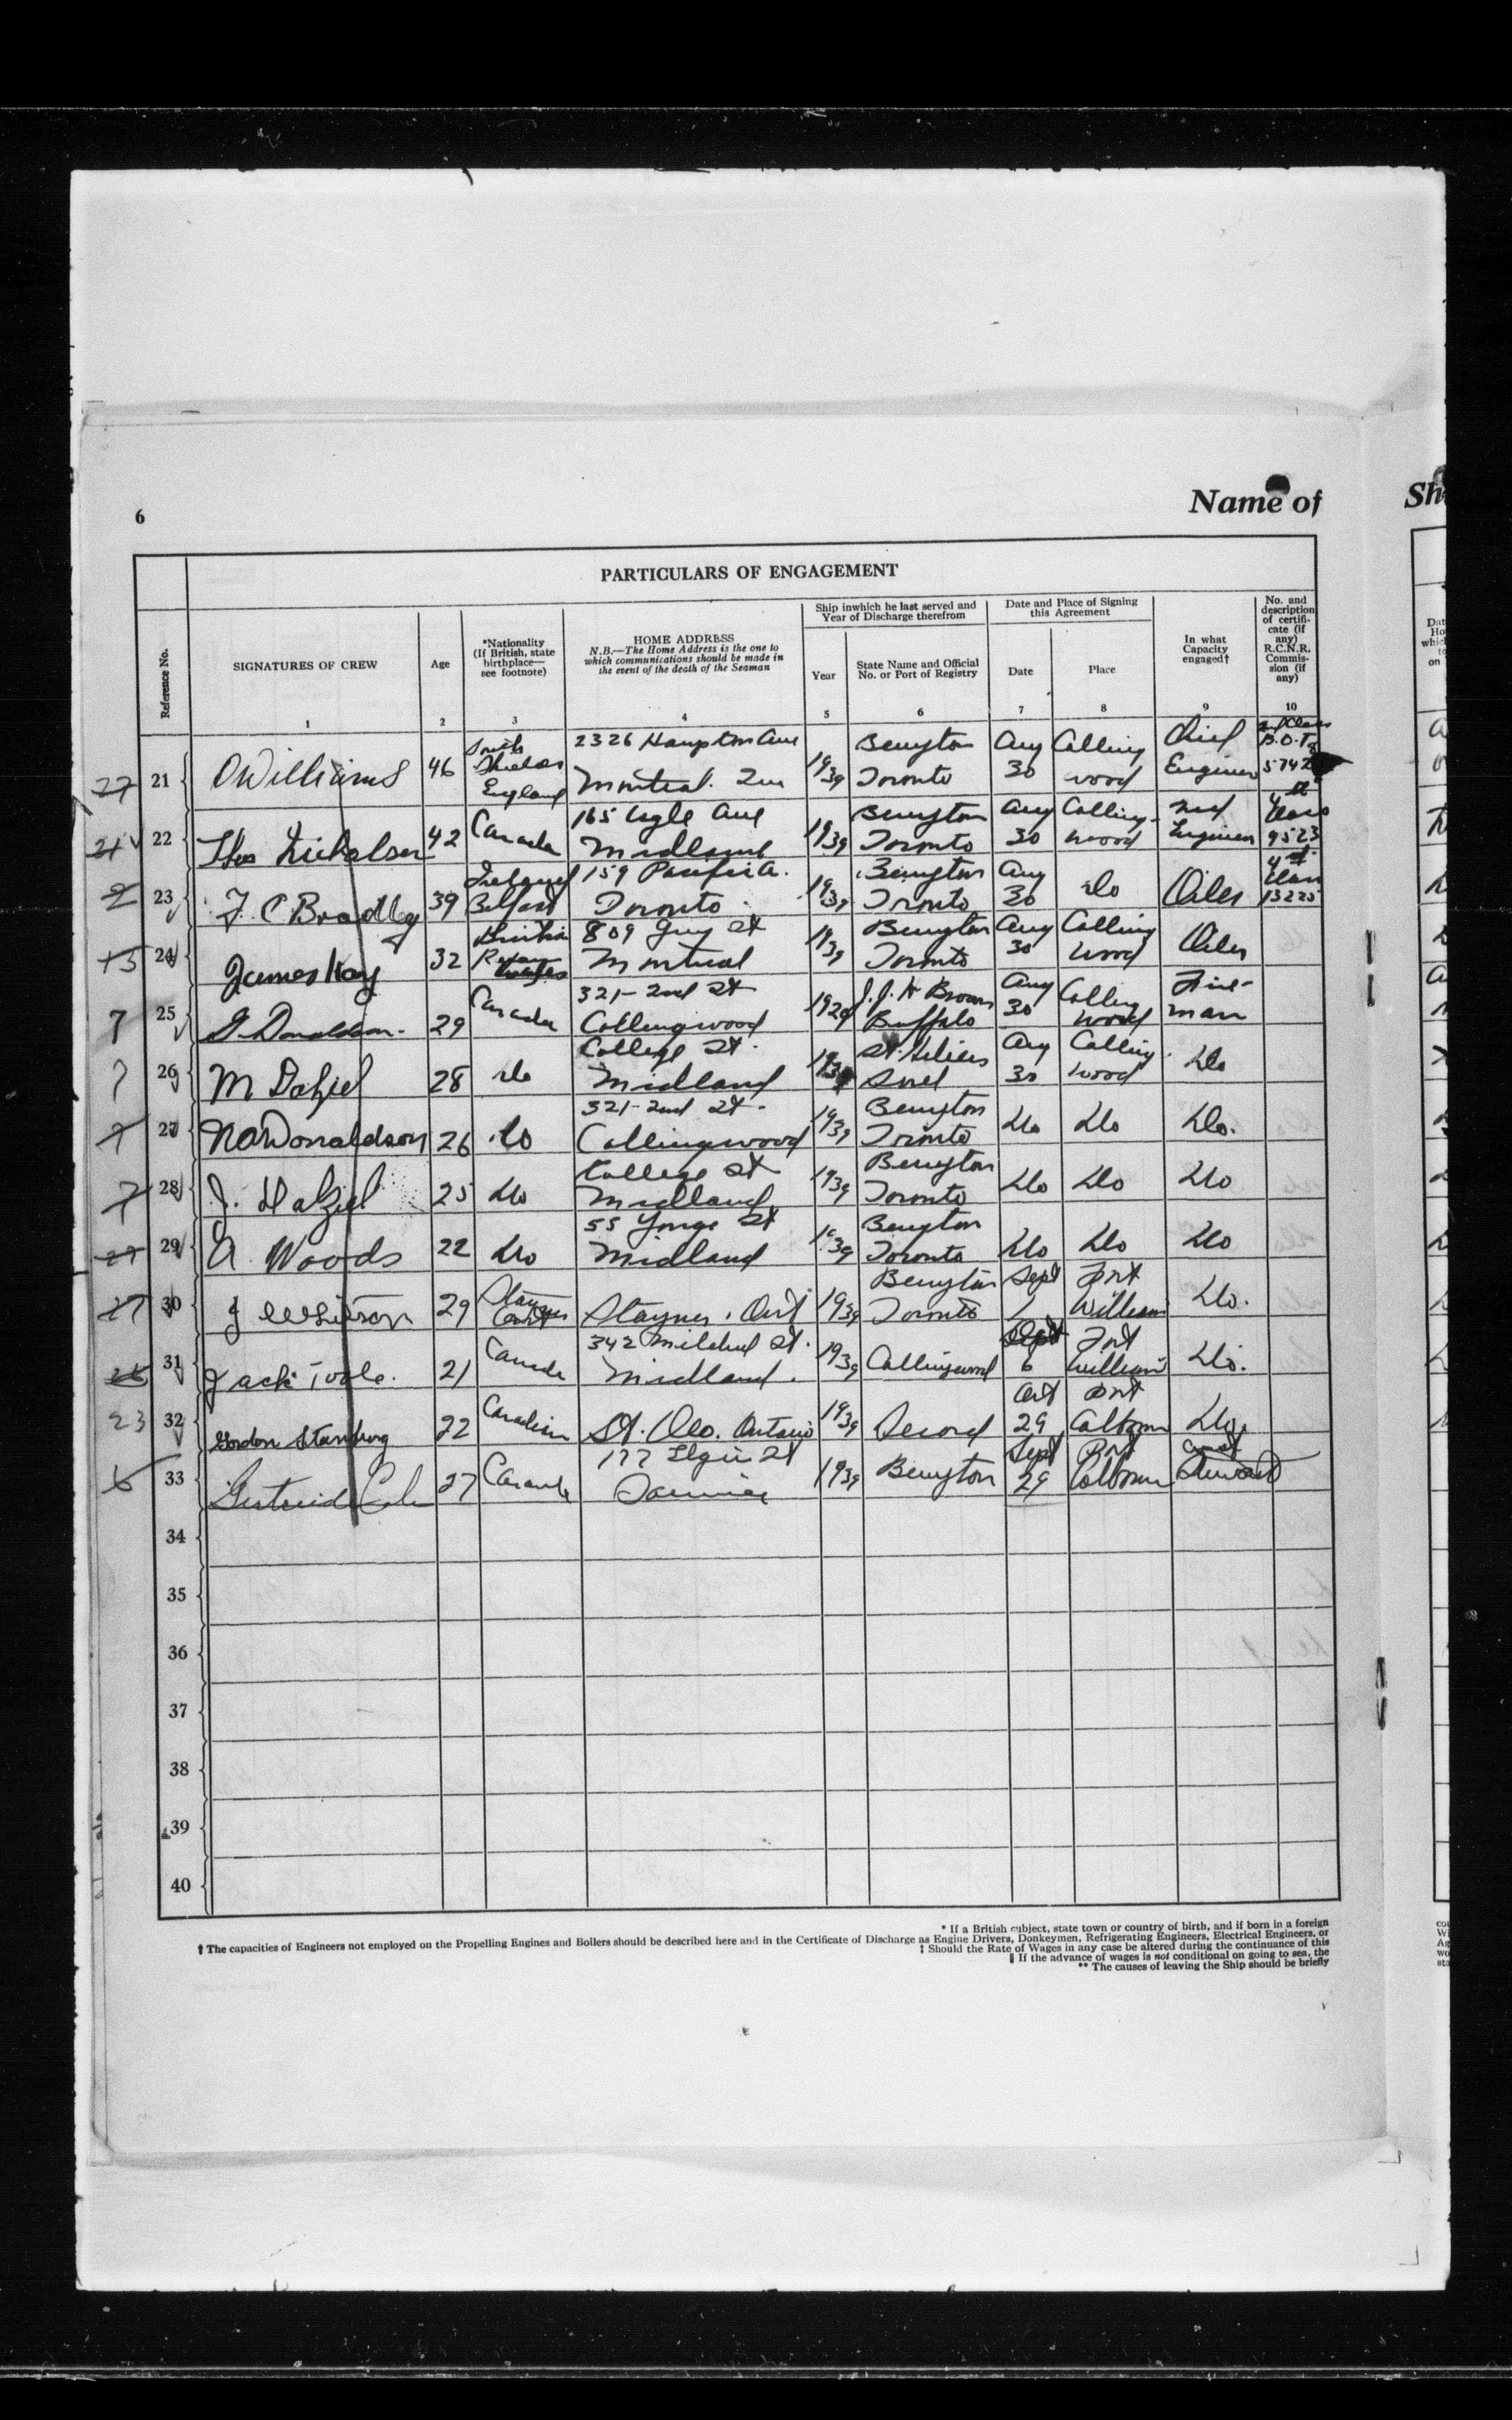 6
Name of
PARTICULARS OF ENGAGEMENT
Reference No.
SIGNATURES OF CREW
1
Age
2
*Nationality
(If British, state
birthplace—
see footnote)
3
HOME ADDRESS
N.B.—The Home Address is the one to
which communications should be made in
the event of the death of the Seaman
4
Ship inwhich he last served and
Year of Discharge therefrom
Year
5
State Name and Official
No. or Port of Registry
6
Date and Place of Signing
this Agreement
Date
7
Place
8
In what
Capacity
engaged†
9
No. and
description
of certifi-
cate (if
any)
R.C.N.R.
Commis-
sion (if
any)
10
27 21 O Williams 46 South Shields England 2326 Hampton Ave Montreal. Que 1939 Toronto Aug 30 Collingwood Chief Engineer B.O.T. 5742
22 Theo Nicholson 42 Canada 165 Ave Midland 1939 Toronto Aug 30 Collingwood 2nd Engineer 4th Class 9523
2 23 F C Bradley 39 Ireland Belfast 159 Pacific A. Toronto 1939 Toronto Aug 30 do Oiler 4th Class 13225
15 24 James Kay 32 809 Guy St Montreal 1939 Toronto Aug 30 Collingwood Oiler
7 25 G. Donaldson. 29 Canada 321-2nd St Collingwood 1929 J. J. H Brown Buffalo Aug 30 Collingwood Fireman
7 26 M Dalziel 28 do College St. Midland Sorel Aug 30 Collingwood Do
7 27 N Donaldson 26 do 321-2nd St. Collingwood 1939 Toronto Do Do Do.
7 28 J. Dalziel 25 Do College St Midland 1939 Toronto Do Do Do
29 A Woods 22 Do 55 Yonge St Midland 1939 Toronto Do Do Do
27 30 29 Stayner Ont Stayner. Ont 1939 Toronto Sept Fort William Do.
31 Jack Toole. 21 Canada 342 Mildred St. Midland. 1939 Collingwood Sept 6 Fort William Do.
23 32 Gordon 22 Canadian Ontario 1939 Oct 29 Port Colborne Do.
33 Gertrude 27 Canada 177 Elgin St 1939 Sept 29 Port Colborne Steward
34
35
36
37
38
39
40
* If a British subject, state town or country of birth, and if born in a foreign
† The capacities of Engineers not employed on the Propelling Engines and Boilers should be described here and in the Certificate of Discharge as Engine Drivers, Donkeymen, Refrigerating Engineers, Electrical Engineers, or
‡ Should the Rate of Wages in any case be altered during the continuance of this
‖ If the advance of wages is not conditional on going to sea, the
** The causes of leaving the Ship should be briefly